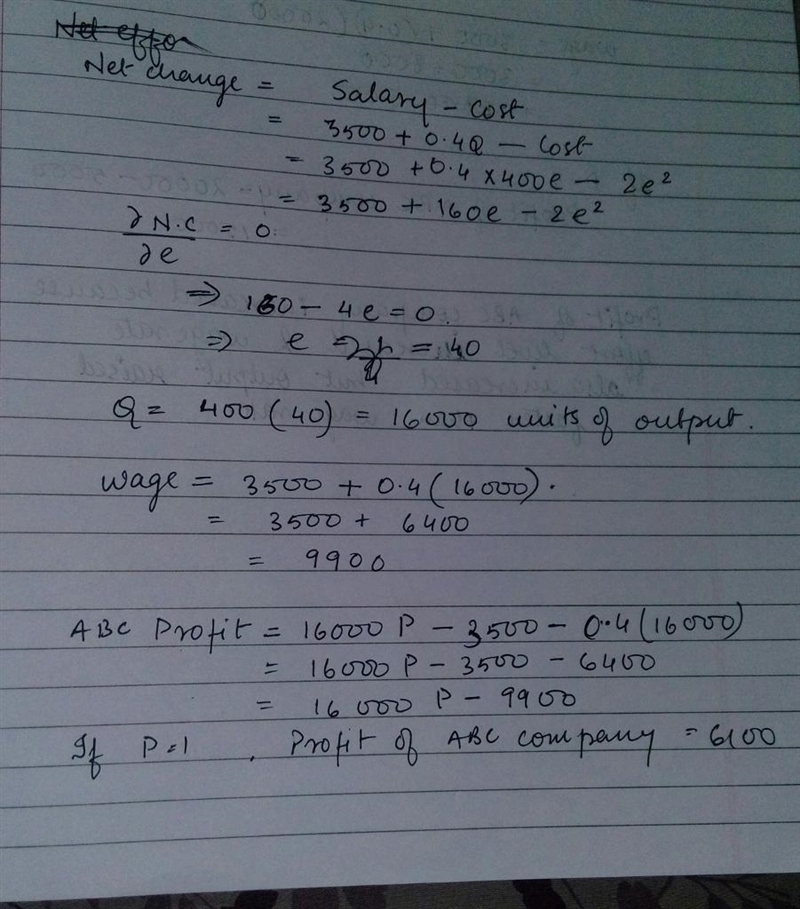 Net effor
Net change = Salary - cost
= 3500 + 0.4Q - cost
= 3500 + 0.4 × 400e - 2e²
= 3500 + 160e - 2e²
∂N.C/∂e = 0
⇒ 160 - 4e = 0.
⇒ e = 40
Q = 400 (40) = 16000 units of output.
Wage = 3500 + 0.4 (16000).
= 3500 + 6400
= 9900
ABC Profit = 16000 P - 3500 - 0.4 (16000)
= 16000 P - 3500 - 6400
= 16 000 P - 9900
If P=1, Profit of ABC company = 6100